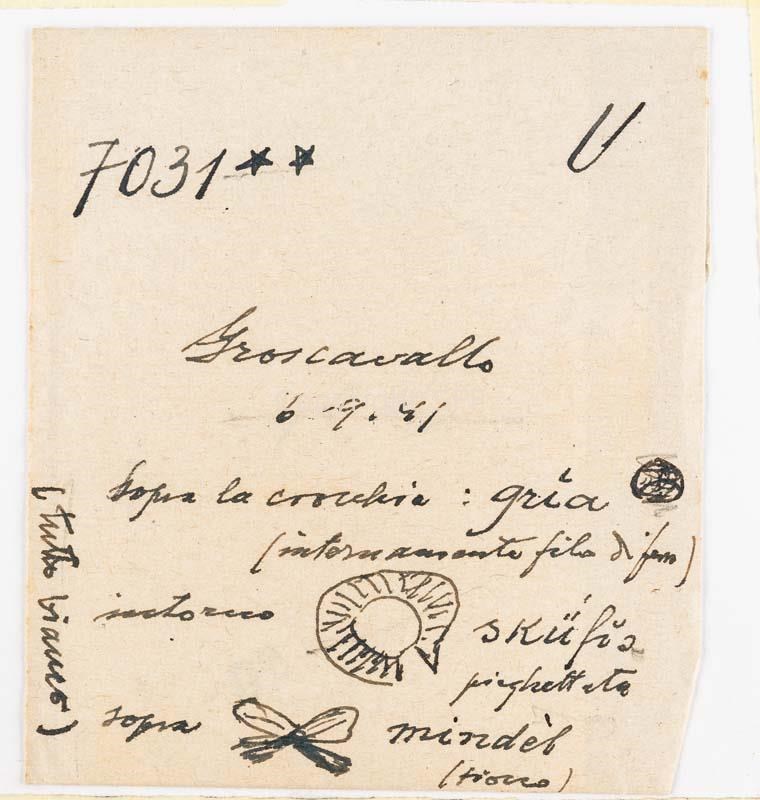 7031**
U
Groscavallo
6-9.41
sopra la crocchia : gría
(internamente filo di ferro)
intorno
skǘfi̯s
pieghettata
sopra
mindèl
(fiocco)
(tutto bianco)